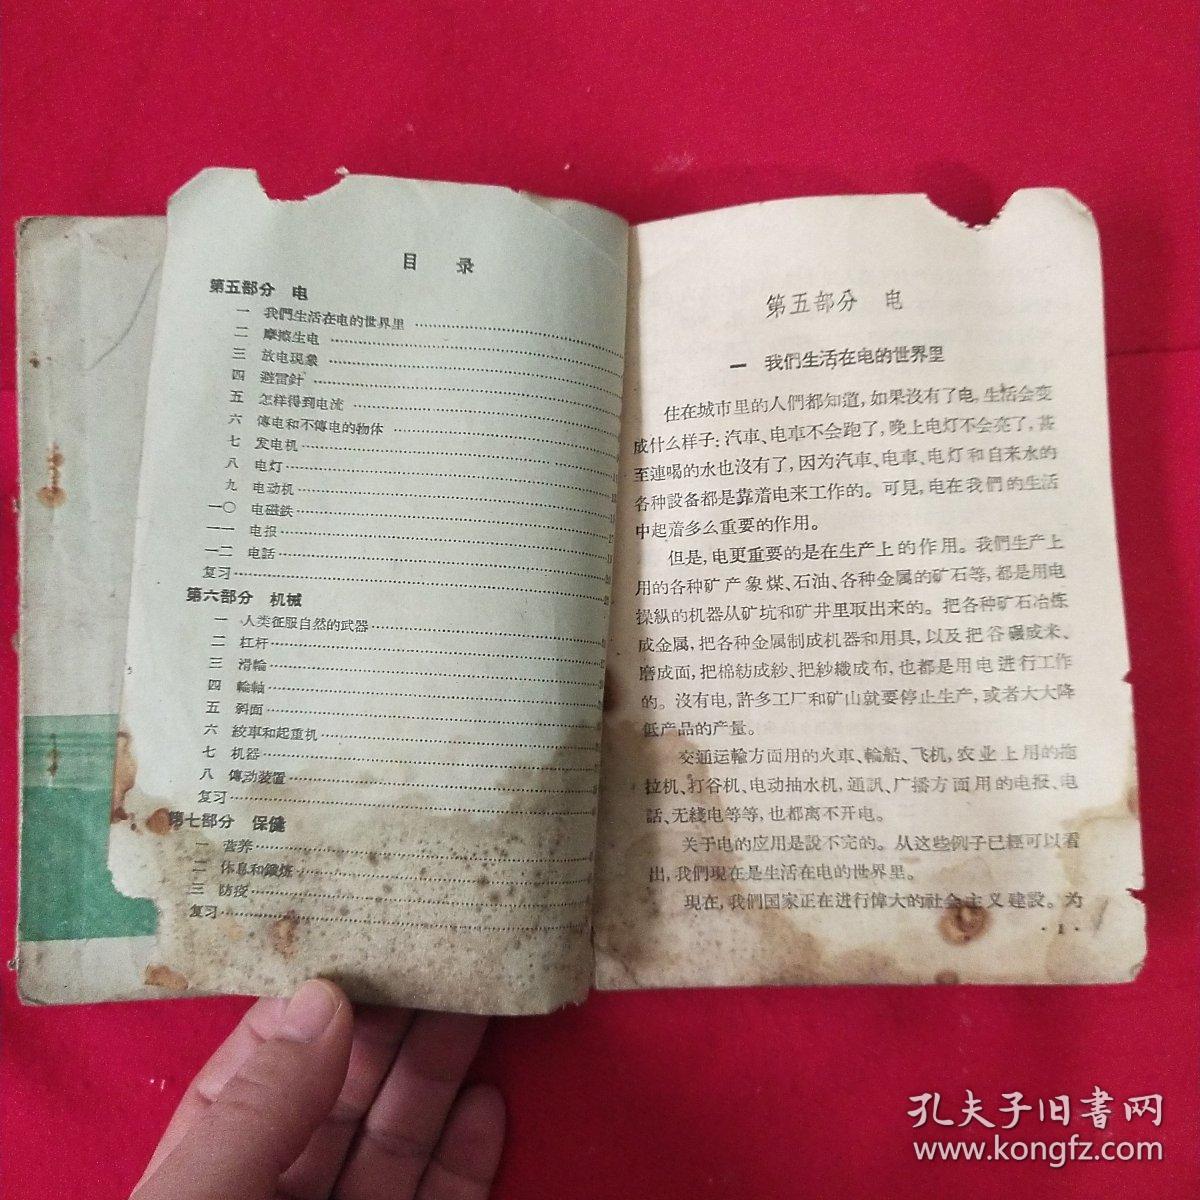 目 录
第五部分 电
一 我們生活在电的世界里
二 摩擦生电
三 放电現象
四 避雷針
五 怎样得到电流
六 傳电和不傳电的物体
七 发电机
八 电灯
九 电动机
一〇 电磁鉄
一一 电报
一二 电話
复习
第六部分 机械
一 人类征服自然的武器
二 杠杆
三 滑輪
四 輪軸
五 斜面
六 絞車和起重机
七 机器
八 傳动装置
复习
第七部分 保健
一 营养
二 休息和鍛炼
三 防疫
复习
第五部分 电
一 我們生活在电的世界里
住在城市里的人們都知道,如果沒有了电,生活会变
成什么样子:汽車、电車不会跑了,晚上电灯不会亮了,甚
至連喝的水也沒有了,因为汽車、电車、电灯和自来水的
各种設备都是靠着电来工作的。可見,电在我們的生活
中起着多么重要的作用。
但是,电更重要的是在生产上的作用。我們生产上
用的各种矿产象煤、石油、各种金属的矿石等,都是用电
操縱的机器从矿坑和矿井里取出来的。把各种矿石冶炼
成金属,把各种金属制成机器和用具,以及把谷碾成米、
磨成面,把棉紡成紗、把紗織成布,也都是用电进行工作
的。沒有电,許多工厂和矿山就要停止生产,或者大大降
低产品的产量。
交通运輸方面用的火車、輪船、飞机,农业上用的拖
拉机、打谷机、电动抽水机,通訊、广播方面用的电报、电
話、无綫电等等,也都离不开电。
关于电的应用是說不完的。从这些例子已經可以看
出,我們現在是生活在电的世界里。
現在,我們国家正在进行偉大的社会主义建設。为
· 1 ·
孔夫子旧書网
www.kongfz.com